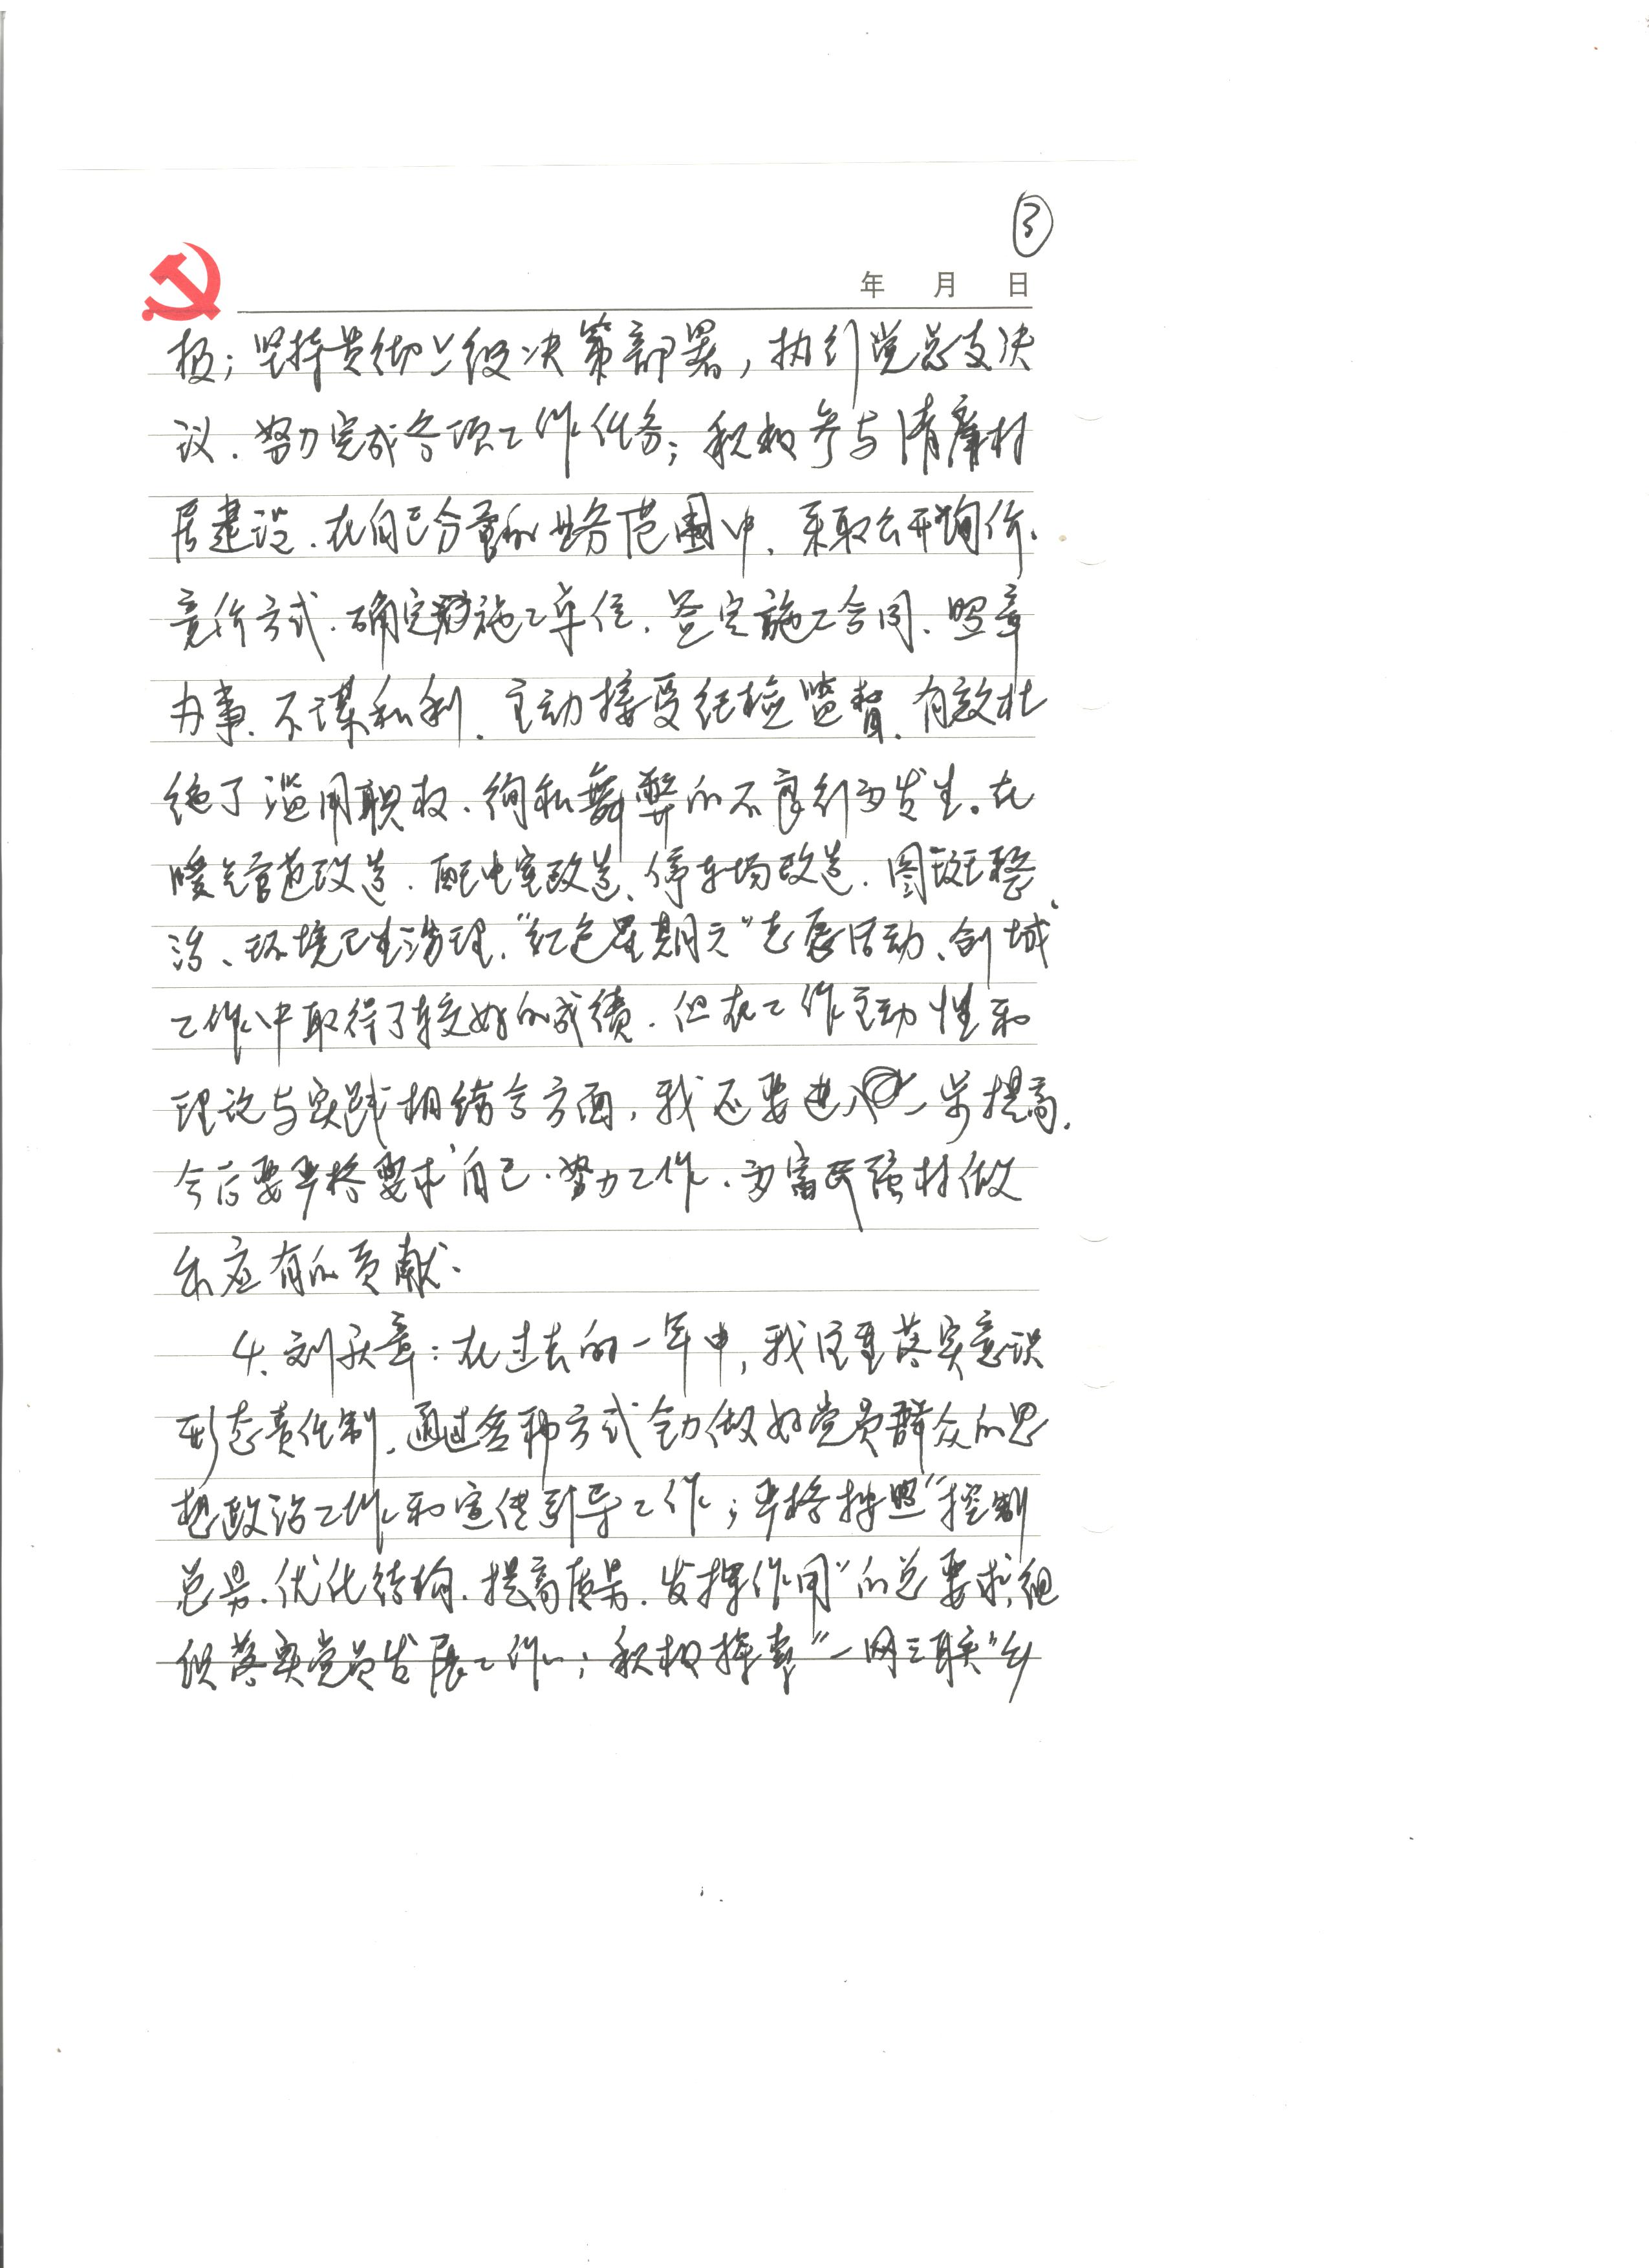 ③
年 月 日
极；坚持贯彻上级决策部署，执行党总支决
议、努力完成各项工作任务；积极参与清廉村
居建设、在自己分管的业务范围中、采取公开询价、
竞价方式、确定施工单位、签定施工合同、照章
办事、不谋私利、主动接受纪检监督、有效杜
绝了滥用职权、徇私舞弊的不良行为发生。在
暖气管道改造、配电室改造、停车场改造、图斑整
治、环境卫生治理、“红色星期六”志愿活动、创城
工作中取得了较好的成绩、但在工作主动性和
理论与实践相结合方面，我还要进一步提高。
今后要严格要求自己、努力工作、为富民强村做
出应有的贡献、
4、刘庆章：在过去的一年中，我注重落实意识
形态责任制、通过各种方式全力做好党员群众的思
想政治工作和宣传引导工作；严格按照“控制
总量、优化结构、提高质量、发挥作用”的总要求，组
织落实党员发展工作；积极探索“一网三联”乡